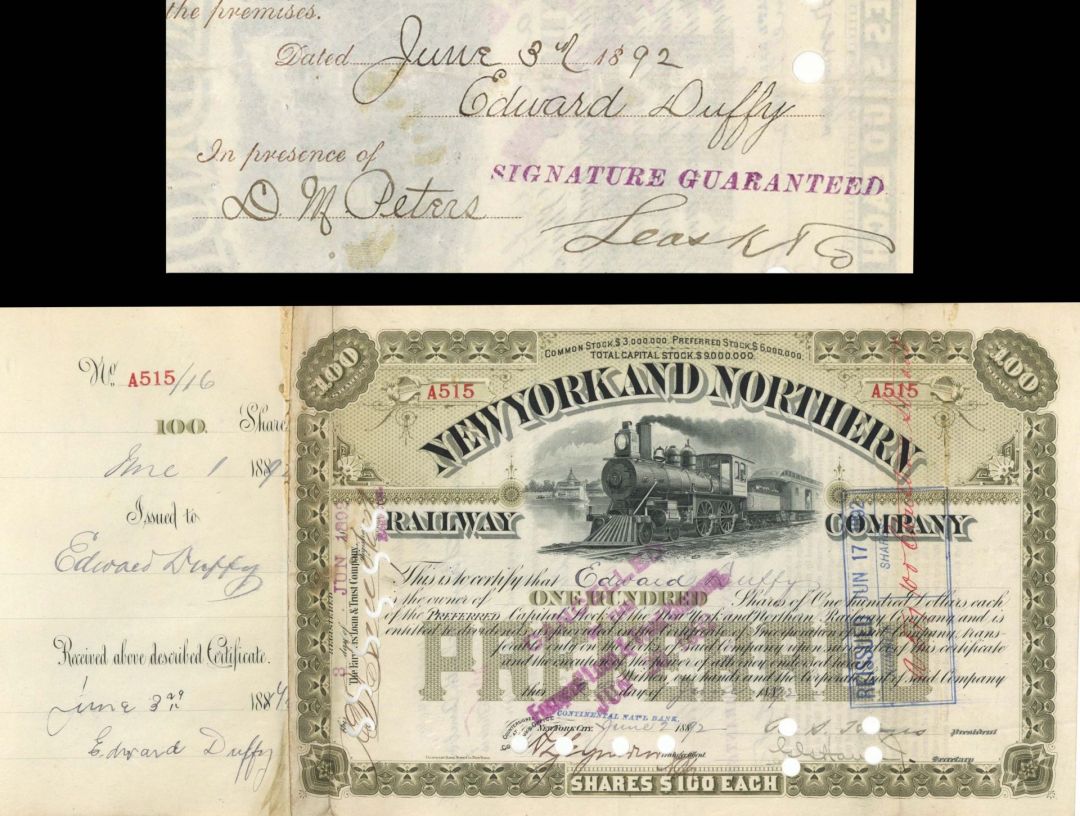 the premises.
Dated June 3rd 1892
Edward Duffy
In presence of
SIGNATURE GUARANTEED
D. M. Peters
Leask & Co
No. A515/16
100 Share
June 1 1892
Issued to
Edward Duffy
Received above described Certificate.
June 3rd 188
Edward Duffy
COMMON STOCK, $3,000,000. PREFERRED STOCK, $6,000,000.
TOTAL CAPITAL STOCK, $9,000,000.
100 100
A515 A515
NEW YORK AND NORTHERN
RAILWAY COMPANY
This is to certify that Edward Duffy
is the owner of ONE HUNDRED Shares of One hundred Dollars each
of the PREFERRED Capital Stock of the New York and Northern Railway Company and is
entitled to dividends as provided in the Certificate of Incorporation of said Company, trans-
ferable only on the books of said Company upon surrender of this certificate
and the execution of the power of attorney endorsed hereon.
Witness, our hands and the Corporate Seal of said Company
this day of 1892
PREFERRED
CONTINENTAL NAT'L BANK,
NEW YORK CITY, June 2 1892
President
Secretary
SHARES $100 EACH
REISSUED JUN 17 1892
SHARES
3 day of JUN 1892
The Farmers Loan & Trust Company